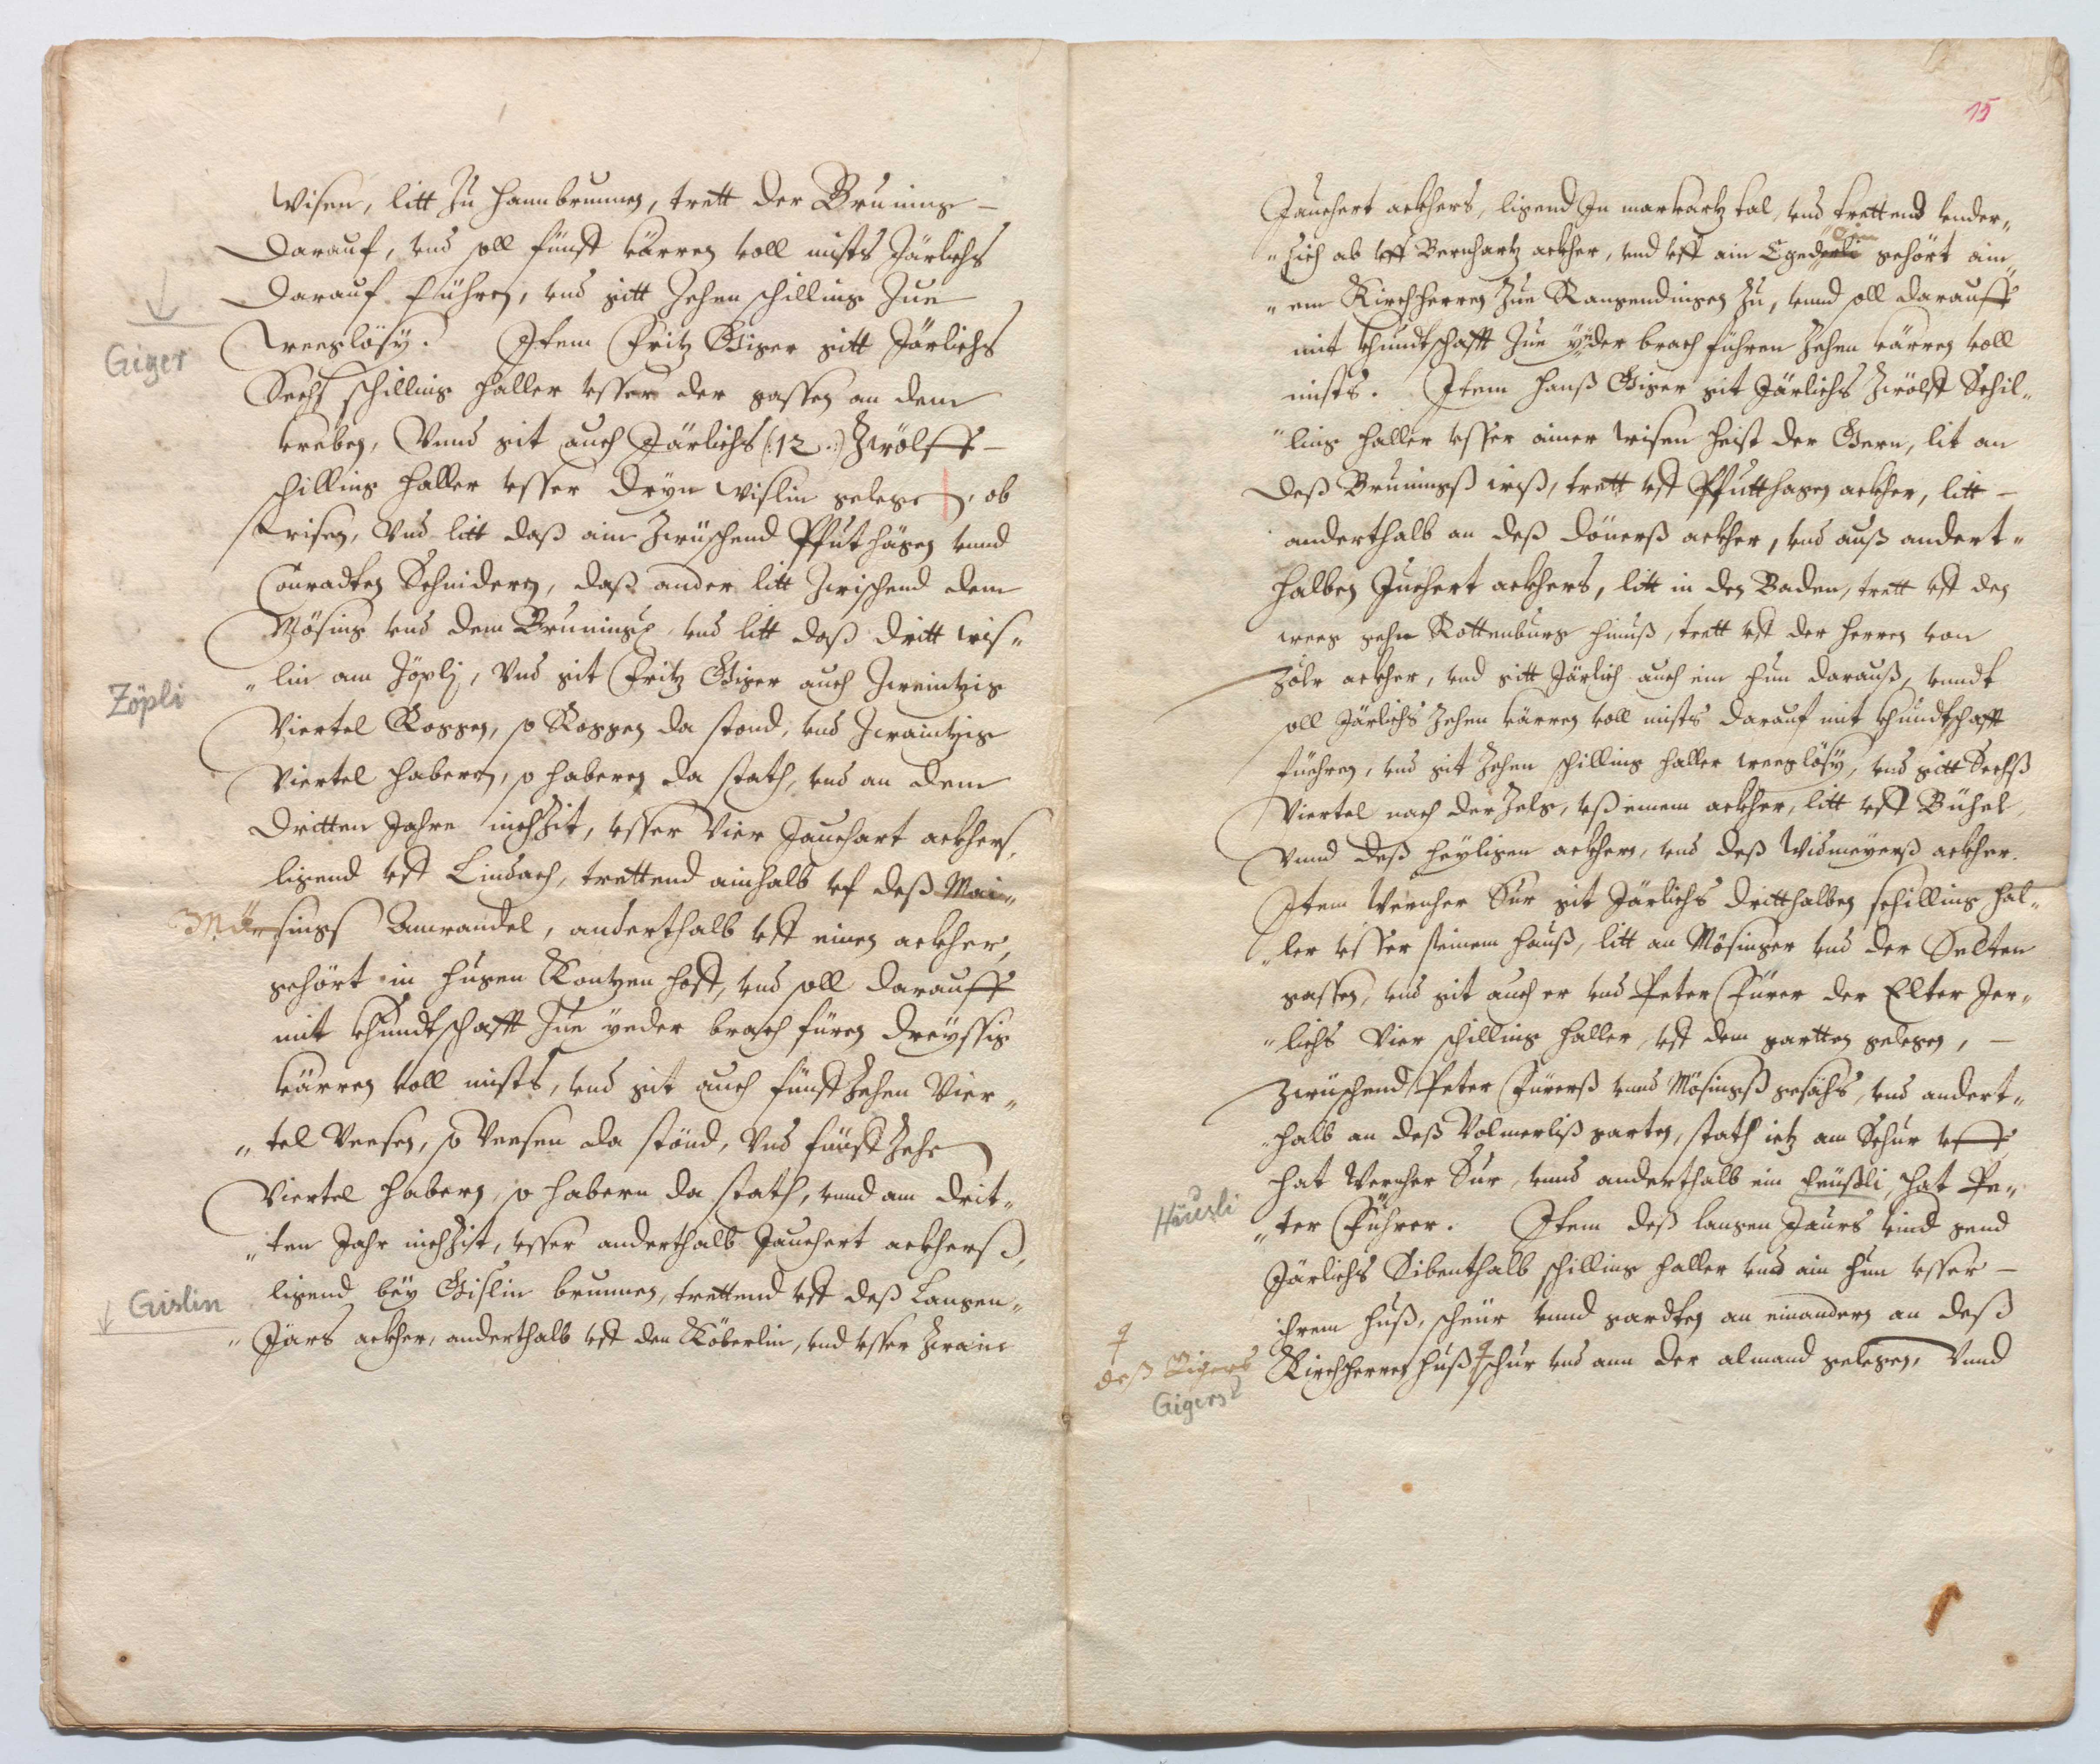 wisen, litt Zu hannbrunnen, trett der Bruning –
darauf, und soll fünff kärren voll mists Järlichs
darauf führen, und gitt Zehen schilling Zue
weeglösy. Item Fritz Giger gitt Järlichs
Giger
Sechs schilling haller usser der gassen an dem
kreben, Vnnd git auch Järlichs (:12.:) Zwölff –
schilling haller usser dryn wislin gelegen, ob
wisen, Vnd litt daß ain Zwüschend Pfuthäsen vnnd
Conradten Schnidern, daß ander litt Zwischend dem
Mösing vnd dem Bruning, vnd litt daß dritt wis„
„lin am Zöpli, Vnd git Fritz Giger auch Zweintzig
Zöpli
Viertel Roggen, so Roggen da stond, vnd Zwaintzig
Viertel haberen, so haberen da stath, vnd an dem
dritten Jahre nichzit, usser Vier Jauchart ackhers,
ligend vff Lindach, trettend ainhalb vf deß Mai„
Mö„sings Anwandel, anderthalb vff einen ackher,
gehört in husen Kontzen hoff, vnd soll darauff
mit khundtschafft Zue yeder brach füren dreyssig
kärren voll mists, vnd git auch fünffzehen Vier„
„tel Veesen, so Veesen da stönd, Vnd fünffzehen
Viertel habern, so habern da stath, vnnd am drit„
„ten Jahr nichzit, usser anderthalb Jauchert ackherß,
ligend bey Gislin brunnen, trettend vff deß Langen„
Gislin
„Järs ackher, anderthalb vff den Köberlin, vnd usser Zwain
15
Jauchert ackhers, ligend In markartz tal, vnd trettend vnder„
„sich ab vff Bernhartz ackher, vnd vff ain Egerd gehört ain„
„em Kirchherren Zue Rangendingen Zu, vnnd soll darauff
mit khundtschafft Zue yeder brach führen Zehen kärren voll
mists. Item Hanß Giger git Järlichs Zwölff Schil„
„ling haller usser ainer wisen heist der Gern, lit an
deß Bruningß wiß, trett vff Pfutthasen ackher, litt –
anderthalb an deß dönerß ackher, vnd auß andert„
halben Juchert ackhers, litt in den Baden, trett vff den
weeg gehn Rottenburg hinuß, trett vff der herren von
Zolr ackher, vnd gitt Järlich auch ein hun darauß, vnndt
soll Järlichs Zehen kärren voll mists darauf mit khundtschafft
füehren, vnd git Zehen schilling haller weeglösy, vnd gitt Sechß
Viertel nach der Zelg, uß einem ackher, litt vff Bühel
Vnnd deß heyligen ackhern, vnd deß Widmeyerß ackher.
Item Wernher Sur git Järlichs dritthalben schilling hal„
„ler usser seinem hauß, litt an Mösinger vnd der Selten
gassen, vnd git auch er vnd Peter Fürer der Elter Jer„
„lichs Vier schilling haller, vff dem gartten gelegen, –
Zwüschend Peter Fürerß vnnd Mösingß gesähs, vnd andert„
„halb an deß Volmerliß garten, stath ietz am Schur vff,
hat Wernher Sur, vnnd anderthalb ein heüßli, hat Pe„
Häusli
„ter Führer. Item deß langen Jaurs kind gend
Järlichs Sibenthalb schilling haller vnd ain hun usser –
ihrem huß, scheür vnnd gardten an einandern an deß
Kirchherren huß schur vnd ann der almand gelegen, Vnnd
deß Gigers
Gigers